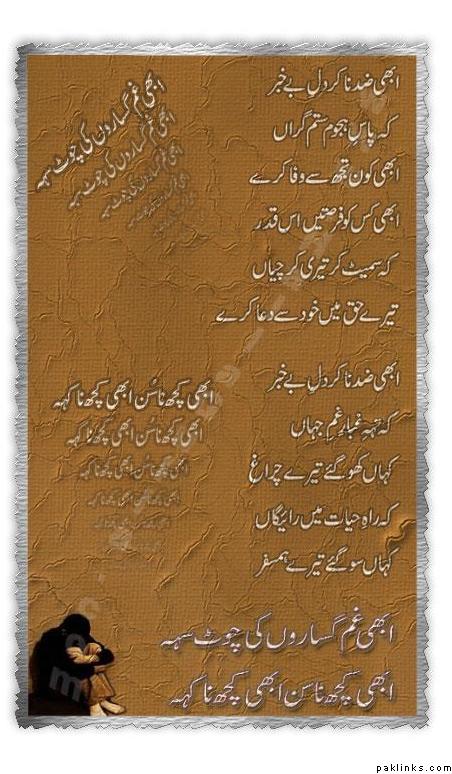 ابھی ضد نا کر دلِ بے خبر
کہ پاسِ ہجومِ ستم گراں
ابھی کون تجھ سے وفا کرے
ابھی کس کو فرصتیں اس قدر
کہ سمیٹ کر تیری کرچیاں
تیرے حق میں خود سے دعا کرے
ابھی غم گساروں کی چوٹ سہہ
ابھی غم گساروں کی چوٹ سہہ
ابھی غم گساروں کی چوٹ سہہ
ابھی غم گساروں کی چوٹ سہہ
ابھی ضد نا کر دلِ بے خبر
کہ تہہِ غبارِ غمِ جہاں
کہاں کھو گئے تیرے چراغ
کہ راہِ حیات میں رائیگاں
کہاں سو گئے تیرے ہمسفر
ابھی کچھ نا سُن ابھی کچھ نا کہہ
ابھی کچھ نا سُن ابھی کچھ نا کہہ
ابھی کچھ نا سُن ابھی کچھ نا کہہ
ابھی کچھ نا سُن ابھی کچھ نا کہہ
ابھی غم گساروں کی چوٹ سہہ
ابھی کچھ نا سُن ابھی کچھ نا کہہ
paklinks.com